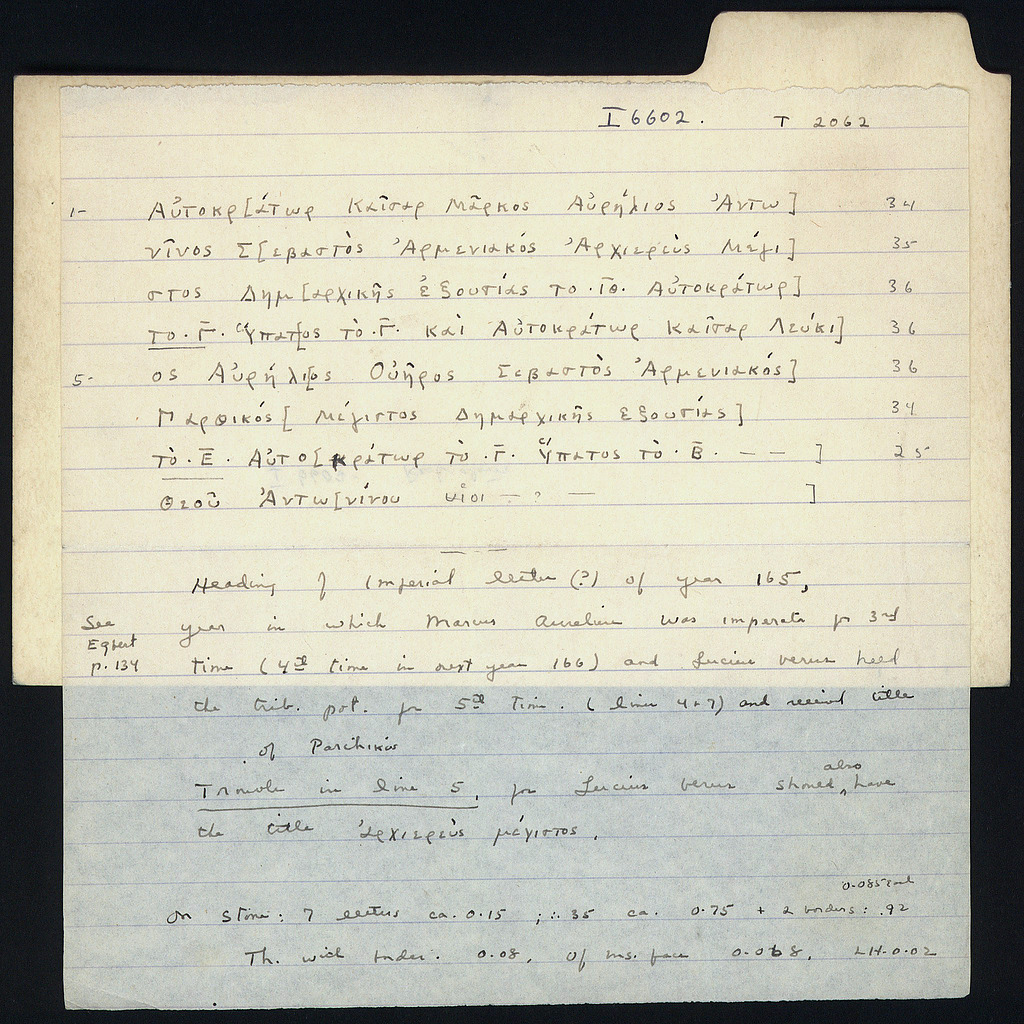 I 6602. T 2062
1- Αὐτοκρ[άτωρ Καῖσαρ Μᾶρκος Αὐρήλιος Ἀντω] 34
νῖνος Σ[εβαστὸς Ἀρμενιακός Ἀρχιερεὺς Μέγι] 35
στος Δημ[αρχικῆς ἐξουσίας το · ῙΘ̄. Αὐτοκράτωρ] 36
το · Γ̄ · Ὕπατ[ος τὸ · Γ̄ · καὶ Αὐτοκράτωρ Καῖσαρ Λεύκι] 36
5- ος Αὐρήλι[ος Οὐῆρος Σεβαστὸς Ἀρμενιακός] 36
Παρθικός [Μέγιστος Δημαρχικῆς ἐξουσίας] 34
τὸ · Ε̄ · Αὐτο[κράτωρ τὸ · Γ̄ · Ὕπατος τὸ · Β̄ · — — ] 25
Θεοῦ Ἀντω[νίνου υἱοι — ? — ]
Heading of imperial letter (?) of year 165,
See year in which Marcus Aurelius was imperator for 3rd
Egbert
p. 134 time (4th time in next year 166) and Lucius Verus held
the trib. pot. for 5th time. (lines 4+7) and received title
of Parthikos
Trouble in line 5, for Lucius Verus should also have
the title ἀρχιερεὺς μέγιστος.
0.085 each
On stone: 7 letters ca. 0.15 ; ∴ 35 ca. 0.75 + 2 borders: .92
Th. with border. 0.08, of ins. face 0.068, LH. 0.02